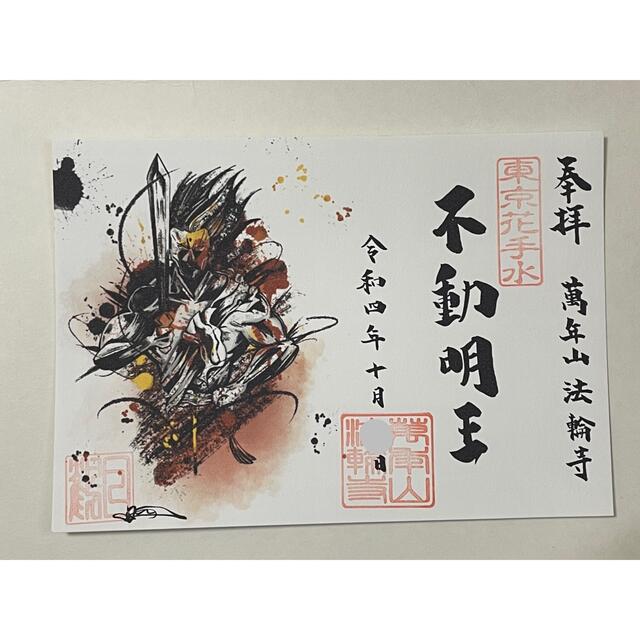 奉拝
萬年山法輪寺
東京花手水
不動明王
令和四年十月
日
萬年山
法輪寺